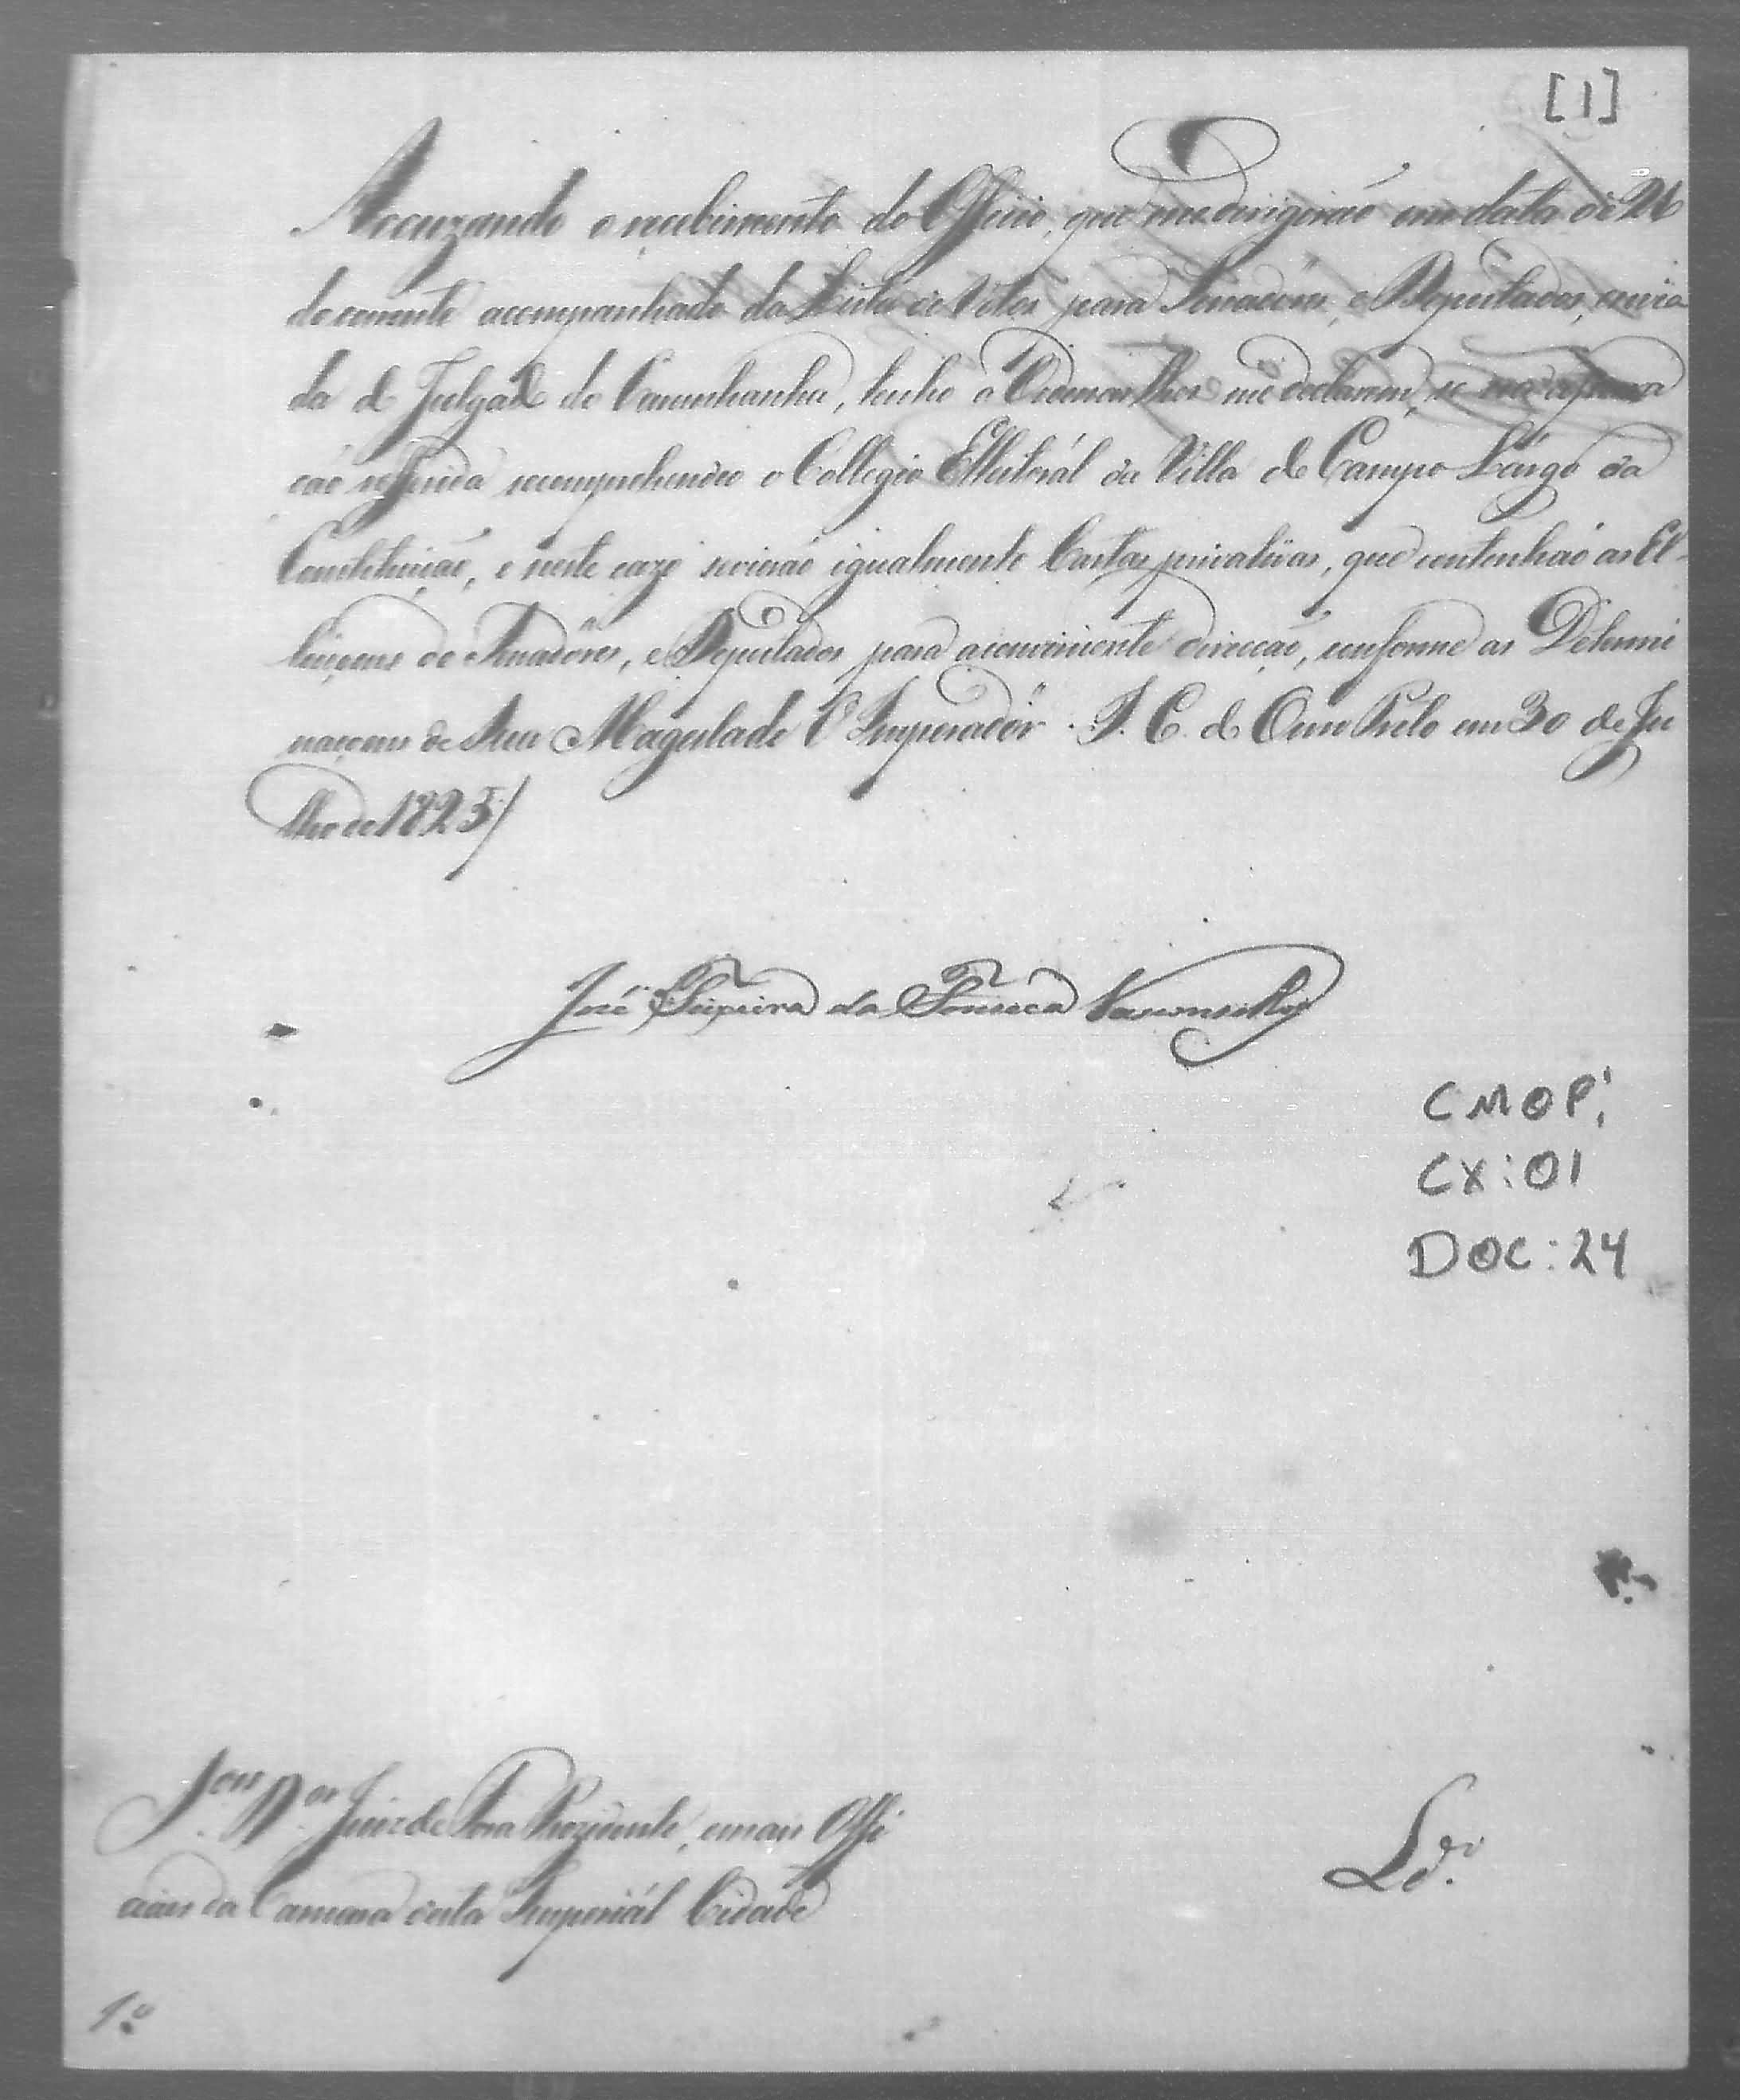 [1]
Accuzando o recebimento do Officio, que me dirigirão em data de 26
do corrente acompanhado da Lista de Votos para Senadores, e Deputados, envia
da do Julgado de Carunhanha, tenho a Ordenar lhes me declarem, se na
ção referida se comprehendeo o Collegio Elleitorál da Villa de Campo Lárgo da
Constituição, e neste cazo se virão igualmente Cartas privativas, que contenhão as El-
leiçoens de Senadôres, e Deputados para a conveniente direcção, conforme as Determi
naçoens de Sua Magestade O Imperadôr. I. C. do Ouro Preto em 30 de Ju
lho de 1825/
José Teixeira da Fonseca Vasconcellos
CMOP:
CX: 01
DOC: 24
Juiz de Fora Prezidente, e mais Offi
ciaes da Camara desta Imperiál Cidade
1º